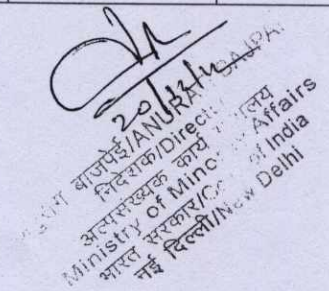 20/12/11
बाजपेई/ANURAG BAJPAI
निदेशक/Director
अल्पसंख्यक कार्य मंत्रालय
Ministry of Minority Affairs
भारत सरकार/Govt. of India
नई दिल्ली/New Delhi